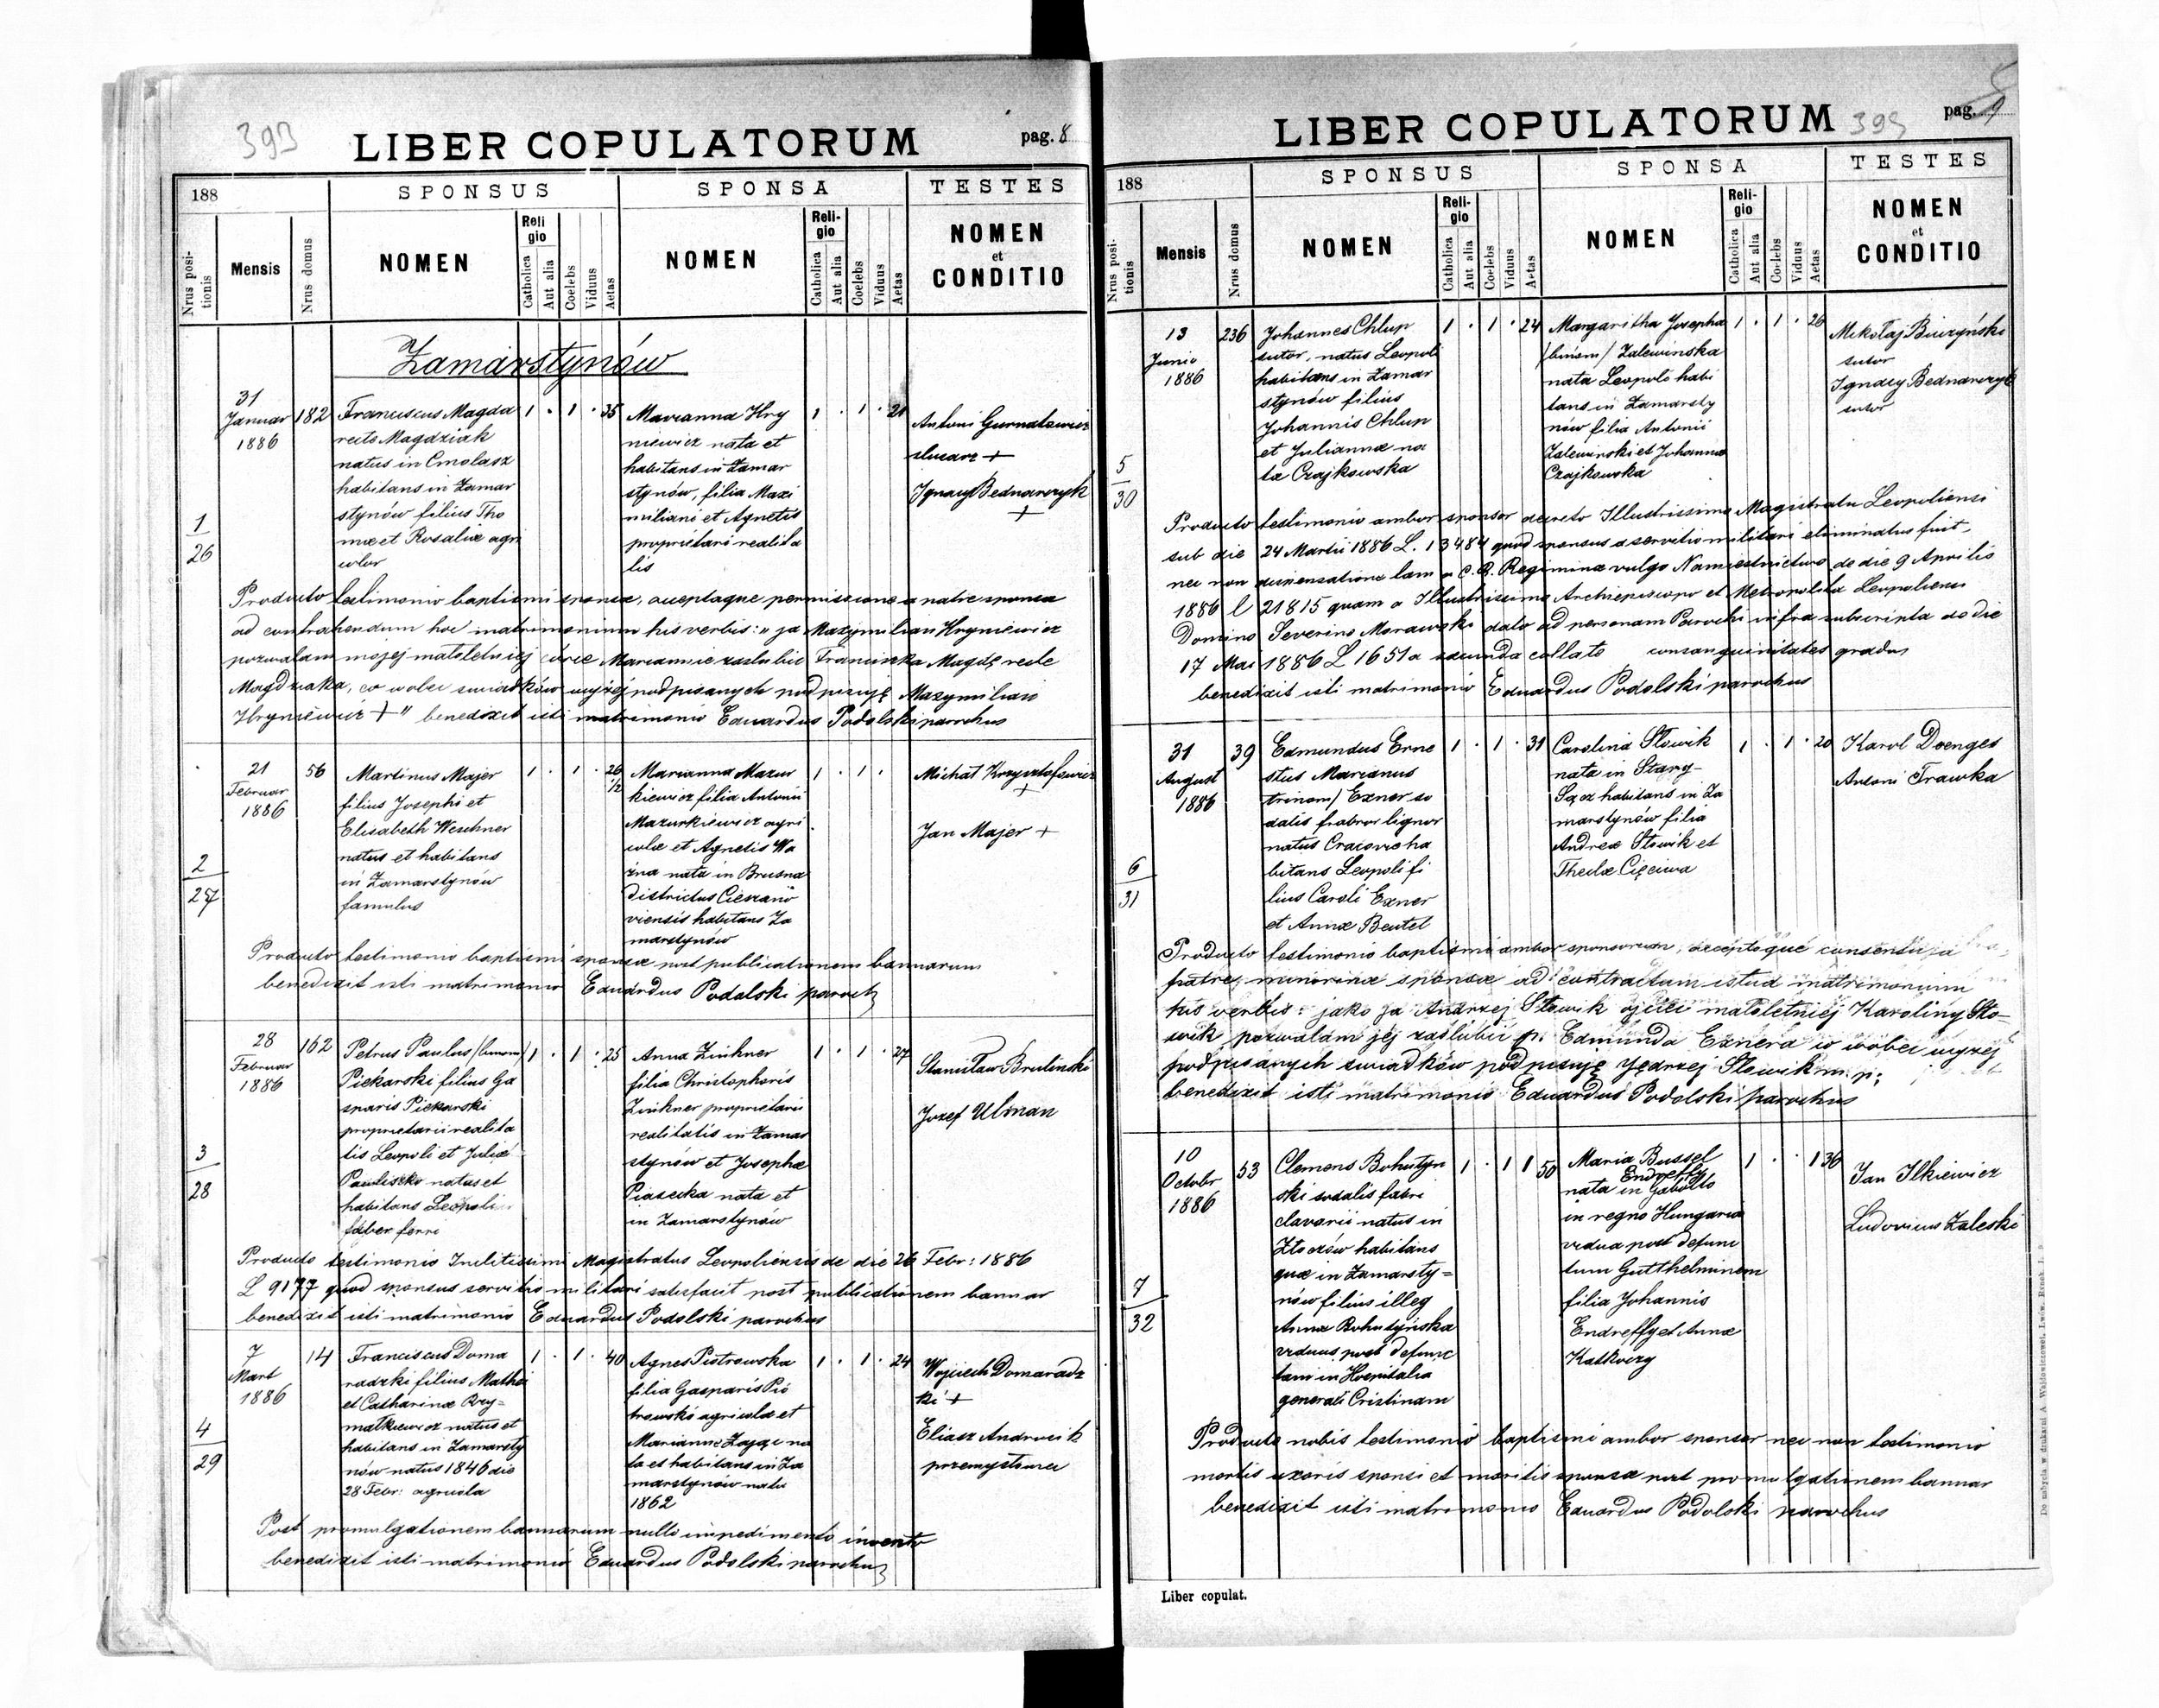 393
LIBER COPULATORUM
pag. 8
188
SPONSUS
SPONSA
TESTES
Nrus positionis
Mensis
Nrus domus
NOMEN
Religio
Catholica
Aut alia
Coelebs
Viduus
Aetas
NOMEN
Religio
Catholica
Aut alia
Coelebs
Viduus
Aetas
NOMEN
et
CONDITIO
Zamarstynów
1
26
31
Januar
1886
182
Franciscus Magda
recte Magdziak
natus in Cmolasz
habitans in Zamar
stynów filius Tho
mae et Rosaliae agri
colar
1 . 1 . 35
Marianna Hry
niewicz nata et
habitans in Zamar
stynów, filia Maxi
miliani et Agnetis
proprietarii realita
tis
1 . 1 . 21
Antoni Gurnatowicz
slusarz +
Ignacy Bednarczyk
+
Producto testimonio baptismi sponsae, acceptaque permissione a patre sponsae
ad contrahendum hoc matrimonium his verbis: „ja Maxymilian Hryniewicz
pozwalam mojej małoletniej córce Mariannie zaslubic Franciszka Magdę recte
Magdziaka, co wobec swiadków wyżej podpisanych podpisuję Maxymilian
Hryniewicz +" benedixit isti matrimonio Eduardus Podolski parochus
2
27
21
Februar
1886
56
Martinus Majer
filius Josephi et
Elisabeth Weschner
natus et habitans
in Zamarstynów
famulus
1 . 1 . 26 1/2
Marianna Mazur
kiewicz filia Antonii
Mazurkiewicz agri
colae et Agnetis Wa
żna nata in Brusna
districtus Cieszano
viensis habitans Za
marstynów
1 . 1 .
Michał Krzysztofowicz
+
Jan Majer +
Producto testimonio baptismi sponsae post publicationem bannorum
benedixit isti matrimonio Eduardus Podolski paroch
3
28
28
Februar
1886
162
Petrus Paulus /binom/
Piekarski filius Ga
sparis Piekarski
proprietarii realita
tis Leopoli et Juliae
Pauliszko natus et
habitans Leopoli
faber ferri
1 . 1 . 25
Anna Zinkner
filia Christophoris
Zinkner proprietarii
realitatis in Zamar
stynów et Josephae
Piasecka nata et
in Zamarstynów
1 . 1 . 27
Stanisław Brulinski
Jozef Ulman
Producto testimonio Inclitissimi Magistratus Leopoliensis de die 26 Febr: 1886
L 9177 quod sponsus servitio militari satisfacit post publicationem bannor
benedixit isti matrimonio Eduardus Podolski parochus
4
29
7
Mart
1886
14
Franciscus Doma
radzki filius Mathei
et Catharinae Rzy=
matkiewicz natus et
habitans in Zamarsty
nów natus 1846 die
28 Febr: agricola
1 . 1 . 40
Agnes Piotrowska
filia Gasparis Pio
trowski agricolae et
Mariannae Zając na
ta et habitans in Za
marstynów nata
1862
1 . 1 . 24
Wojciech Domaradz
ki +
Eliasz Andrucik
przemysłowiec
Post promulgationem bannorum nullo impedimento invento
benedixit isti matrimonio Eduardus Podolski parochus
LIBER COPULATORUM
393
pag. 9
188
SPONSUS
SPONSA
TESTES
Nrus positionis
Mensis
Nrus domus
NOMEN
Religio
Catholica
Aut alia
Coelebs
Viduus
Aetas
NOMEN
Religio
Catholica
Aut alia
Coelebs
Viduus
Aetas
NOMEN
et
CONDITIO
5
30
13
Junio
1886
236
Johannes Chlup
sutor, natus Leopoli
habitans in Zamar
stynów filius
Johannis Chlup
et Juliannae na
ta Czajkowska
1 . 1 . 24
Margaritha Josepha
/binom/ Zalewinska
nata Leopoli habi
tans in Zamarsty
nów filia Antonii
Zalewinski et Johanna
Czajkowska
1 . 1 . 26
Mikołaj Buczyński
sutor
Ignacy Bednarczyk
sutor
Producto testimonio ambor sponsor decreto Illustrissimo Magistratu Leopoliensi
sub die 24 Martii 1886 L. 13484 quod sponsus a servitio militari eliminatus fuit,
nec non dispensatione tam a C. R. Regimine vulgo Namiestnictwo do die 9 Aprilis
1886 l 21815 quam a Illustrissimo Archiepiscopo et Metropolita Leopoliensi
Domino Severino Morawski dato ad personam Parochi infra subscripta do die
17 Mai 1886 L 1651 a secunda collato consanguinitatis gradus
benedixit isti matrimonio Eduardus Podolski parochus
6
31
31
August
1886
39
Edmundus Erne
stus Marianus
trinom/ Exner so
dalis frabror lignor
natus Cracovie ha
bitans Leopoli fi
lius Caroli Exner
et Annae Beutel
1 . 1 . 31
Carolina Słowik
nata in Stary-
Sącz habitans in Za
marstynów filia
Andreae Słowik et
Theclae Cięciwa
1 . 1 . 20
Karol Doenges
Antoni Trawka
Producto testimonio baptismi ambor sponsorum, acceptoque consensu a
patre, minorinae sponsae ad contractum istud matrimonium
his verbis: jako ja Andrzej Słowik ojciec małoletniej Karoliny Sło-
wik, pozwalam jej zaślubić p. Edmunda Exnera co wobec wyżej
podpisanych swiadków podpisuję Jędrzej Słowik m. p:
benedixit isti matrimonio Eduardus Podolski parochus
7
32
10
Octobr
1886
53
Clemens Bohutyn
ski sodalis fabri
clavarii natus in
Złoczów habitans
que in Zamarsty=
nów filius illeg
Annae Bohutyńska
viduus post defunc
tam in Hospitalia
generali Cristinam
1 . 1 1 50
Maria Bussel
Endreffy
nata in Gabolto
in regno Hungaria
vidua post defunc
tum Gutthelminem
filia Johannis
Endreffy et Annae
Katkvezy
1 . . 1 36
Jan Ilkiewicz
Ludovicus Zaleski
Producto nobis testimonio baptismi ambor sponsor nec non testimonio
mortis uxoris sponsi et maritis sponsae post promulgationem bannor
benedixit isti matrimonio Eduardus Podolski parochus
Liber copulat.